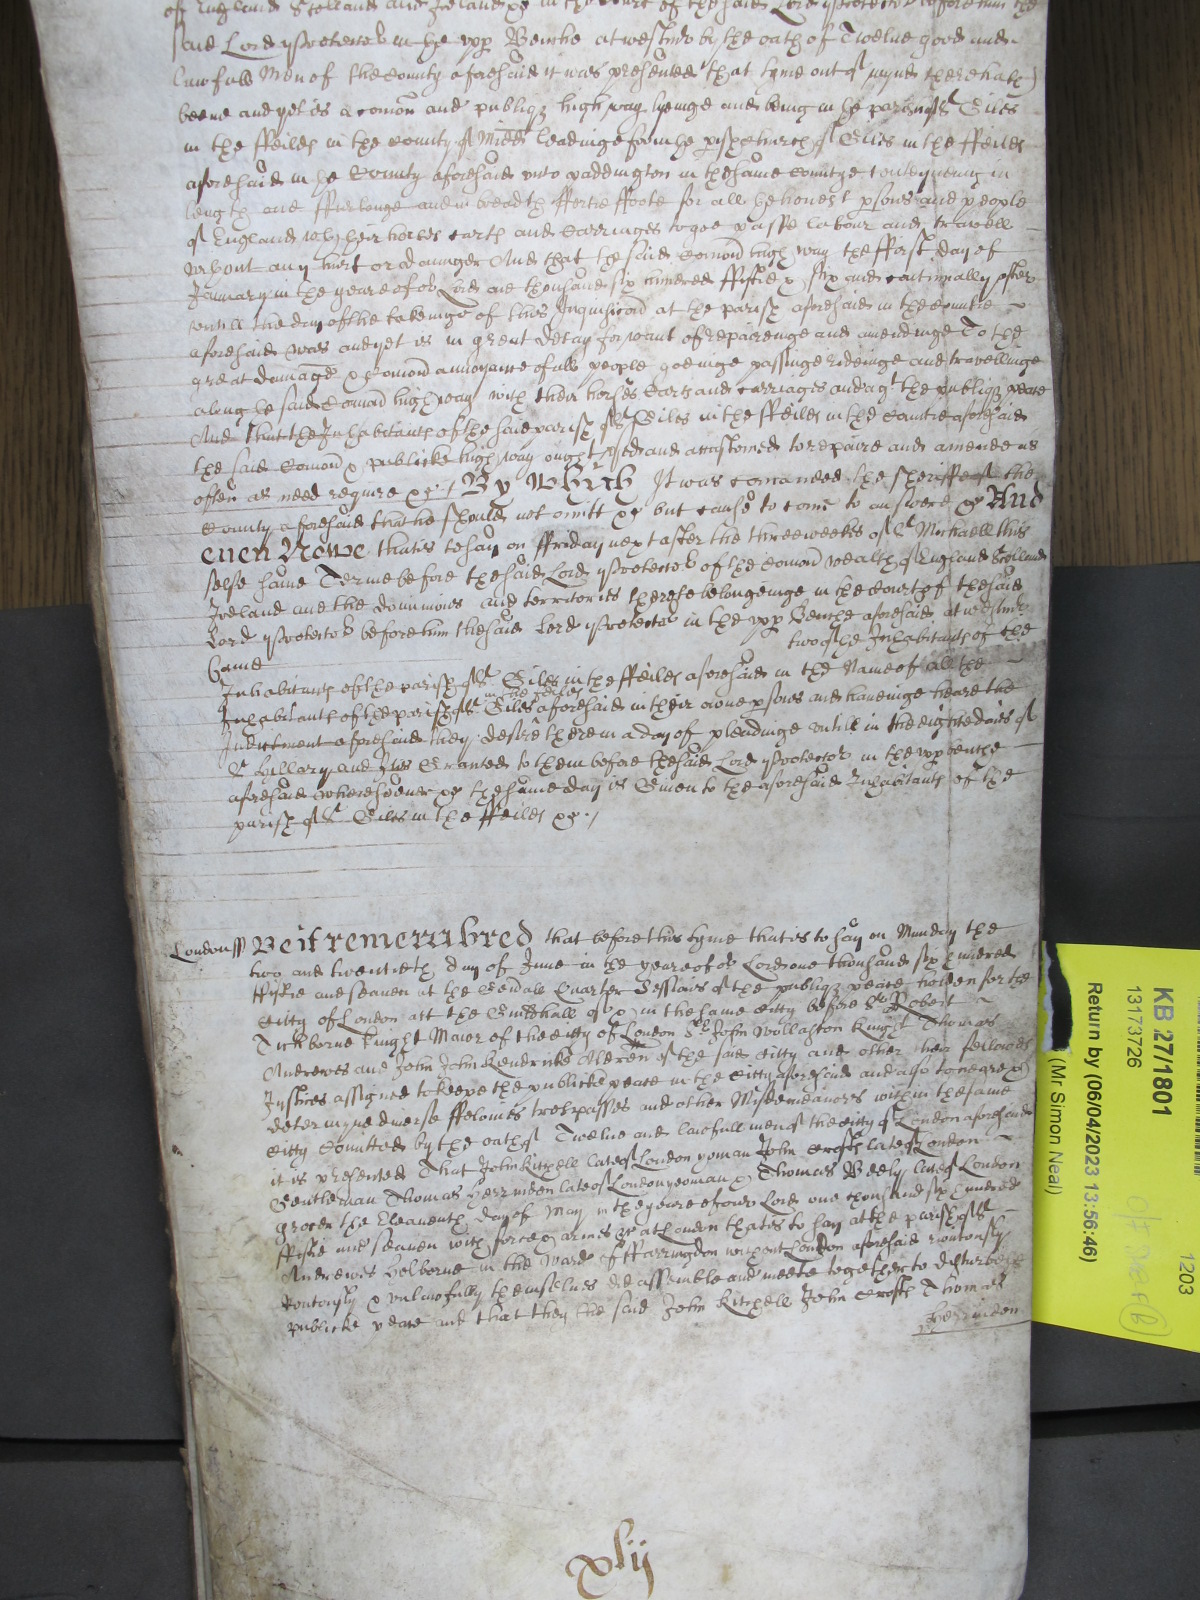 of England Scotland and Ireland &c in the Court of the said Lord Protector before him the
said Lord Protector in the upp Benche at westmr by the oath of Twelue good and
lawfull Men of the County aforesaid it was presented that tyme out of mynd there hath
beene and yet is a comon and publiq high way lyeinge and being in the parish of St Giles
in the ffeilds in the County of Midd leadinge from the pish church of St Giles in the ffeilds
aforesaid in the County aforesaid unto Paddington in the same County conteyneing in
length one ffurlonge and in breadth ffortie ffoote for all the honest psons and people
of England wth their horses carts and Carriages to goe passe labour and travell
wthout any hurt or daunger And that the said Comon high way the first day of
January in the yeare of or Lord one thousand six hundred ffiftie & six and continually after
untill the day of the takeinge of this Inquisicon at the parish aforesaid in the Countie
aforesaid was and yet is in great decay for want of repaireinge and amendinge To the
great damage & Comon annoyance of all people goeinge passinge rideinge and travellinge
along the said Comon high way with their horses Carts and carriages and agt the publiq peace
And that the Inhabitants of the said parish of St Giles in the ffeilds in the Countie aforesaid
the said Comon & publicke high way ought used and accustomed to repaire and amend as
often as need require &c / By Which It was comanded the Sheriffe of the
County aforesaid that he should not omitt &c but cause to come to answere &c And
euen Nowe that is to say on ffriday next after the three weekes of St Michaell this
selfe same Terme before the said Lord Protector of the Comon wealth of England Scotland
Ireland and the dominions and territories thereto belongeinge in the Court of the said
Lord Protector before him the said Lord Protector in the upp Benche aforesaid at westmr
Came two of the Inhabitants of the
Inhabitants of the parish of St Giles in the ffeilds aforesaid in the Name of all the
in the feilds
Inhabitants of the parish of St Giles aforesaid in their owne psons and haueinge heard the
Indictment aforesaid they desire therein a day of pleadinge untill in the eight daies of
St Hillary and It is Granted to them before the said Lord Protector in the upp benche
aforesaid wheresoeuer &c the same day is Giuen to the aforesaid Inhabitants of the
parish of St Giles in the ffeilds &c /
London ss Be it remembred that before this tyme that is to say on Munday the
two and twentieth day of June in the yeare of or Lord one thousand six hundred
ffiftie and seauen at the Genall Quarter Sessions of the publiq peace holden for the
Citty of London att the Guildhall of & in the same Citty before Sr Robert
Tichborne knight Maior of the Citty of London Sr John Wollaston knight Thomas
Andrewes and John John Kendricke Aldren of the said Citty and other their fellowes
Justices assigned to keepe the publicke peace in the Citty aforesaid and also to heare &
determyne diuerse ffelonies trespasses and other Misdemeanors within the same
Citty Comitted by the oath of Twelue and lawfull men of the Citty of London aforesaid
it is presented That John Kitchell late of London yoman John Crosse late of London
Gentleman Thomas Herrinden late of London yeoman & Thomas Beely late of London
grocer the Eleauenth day of May in the yeare of our Lord one thousand six hundred
ffiftie and seauen with force & armes &c at London that is to say at the parish of St
Andrewes Holborne in the Ward of ffarringdon wthout London aforesaid riotously
Routously & vnlawfully themselues did assemble and meete together to disturbe the
publicke peace and that they the said John Kitchell John Crosse Thomas
Herrinden
xlij
KB 27/1801
13173726
Return by (06/04/2023 13:56:46)
(Mr Simon Neal)
1203